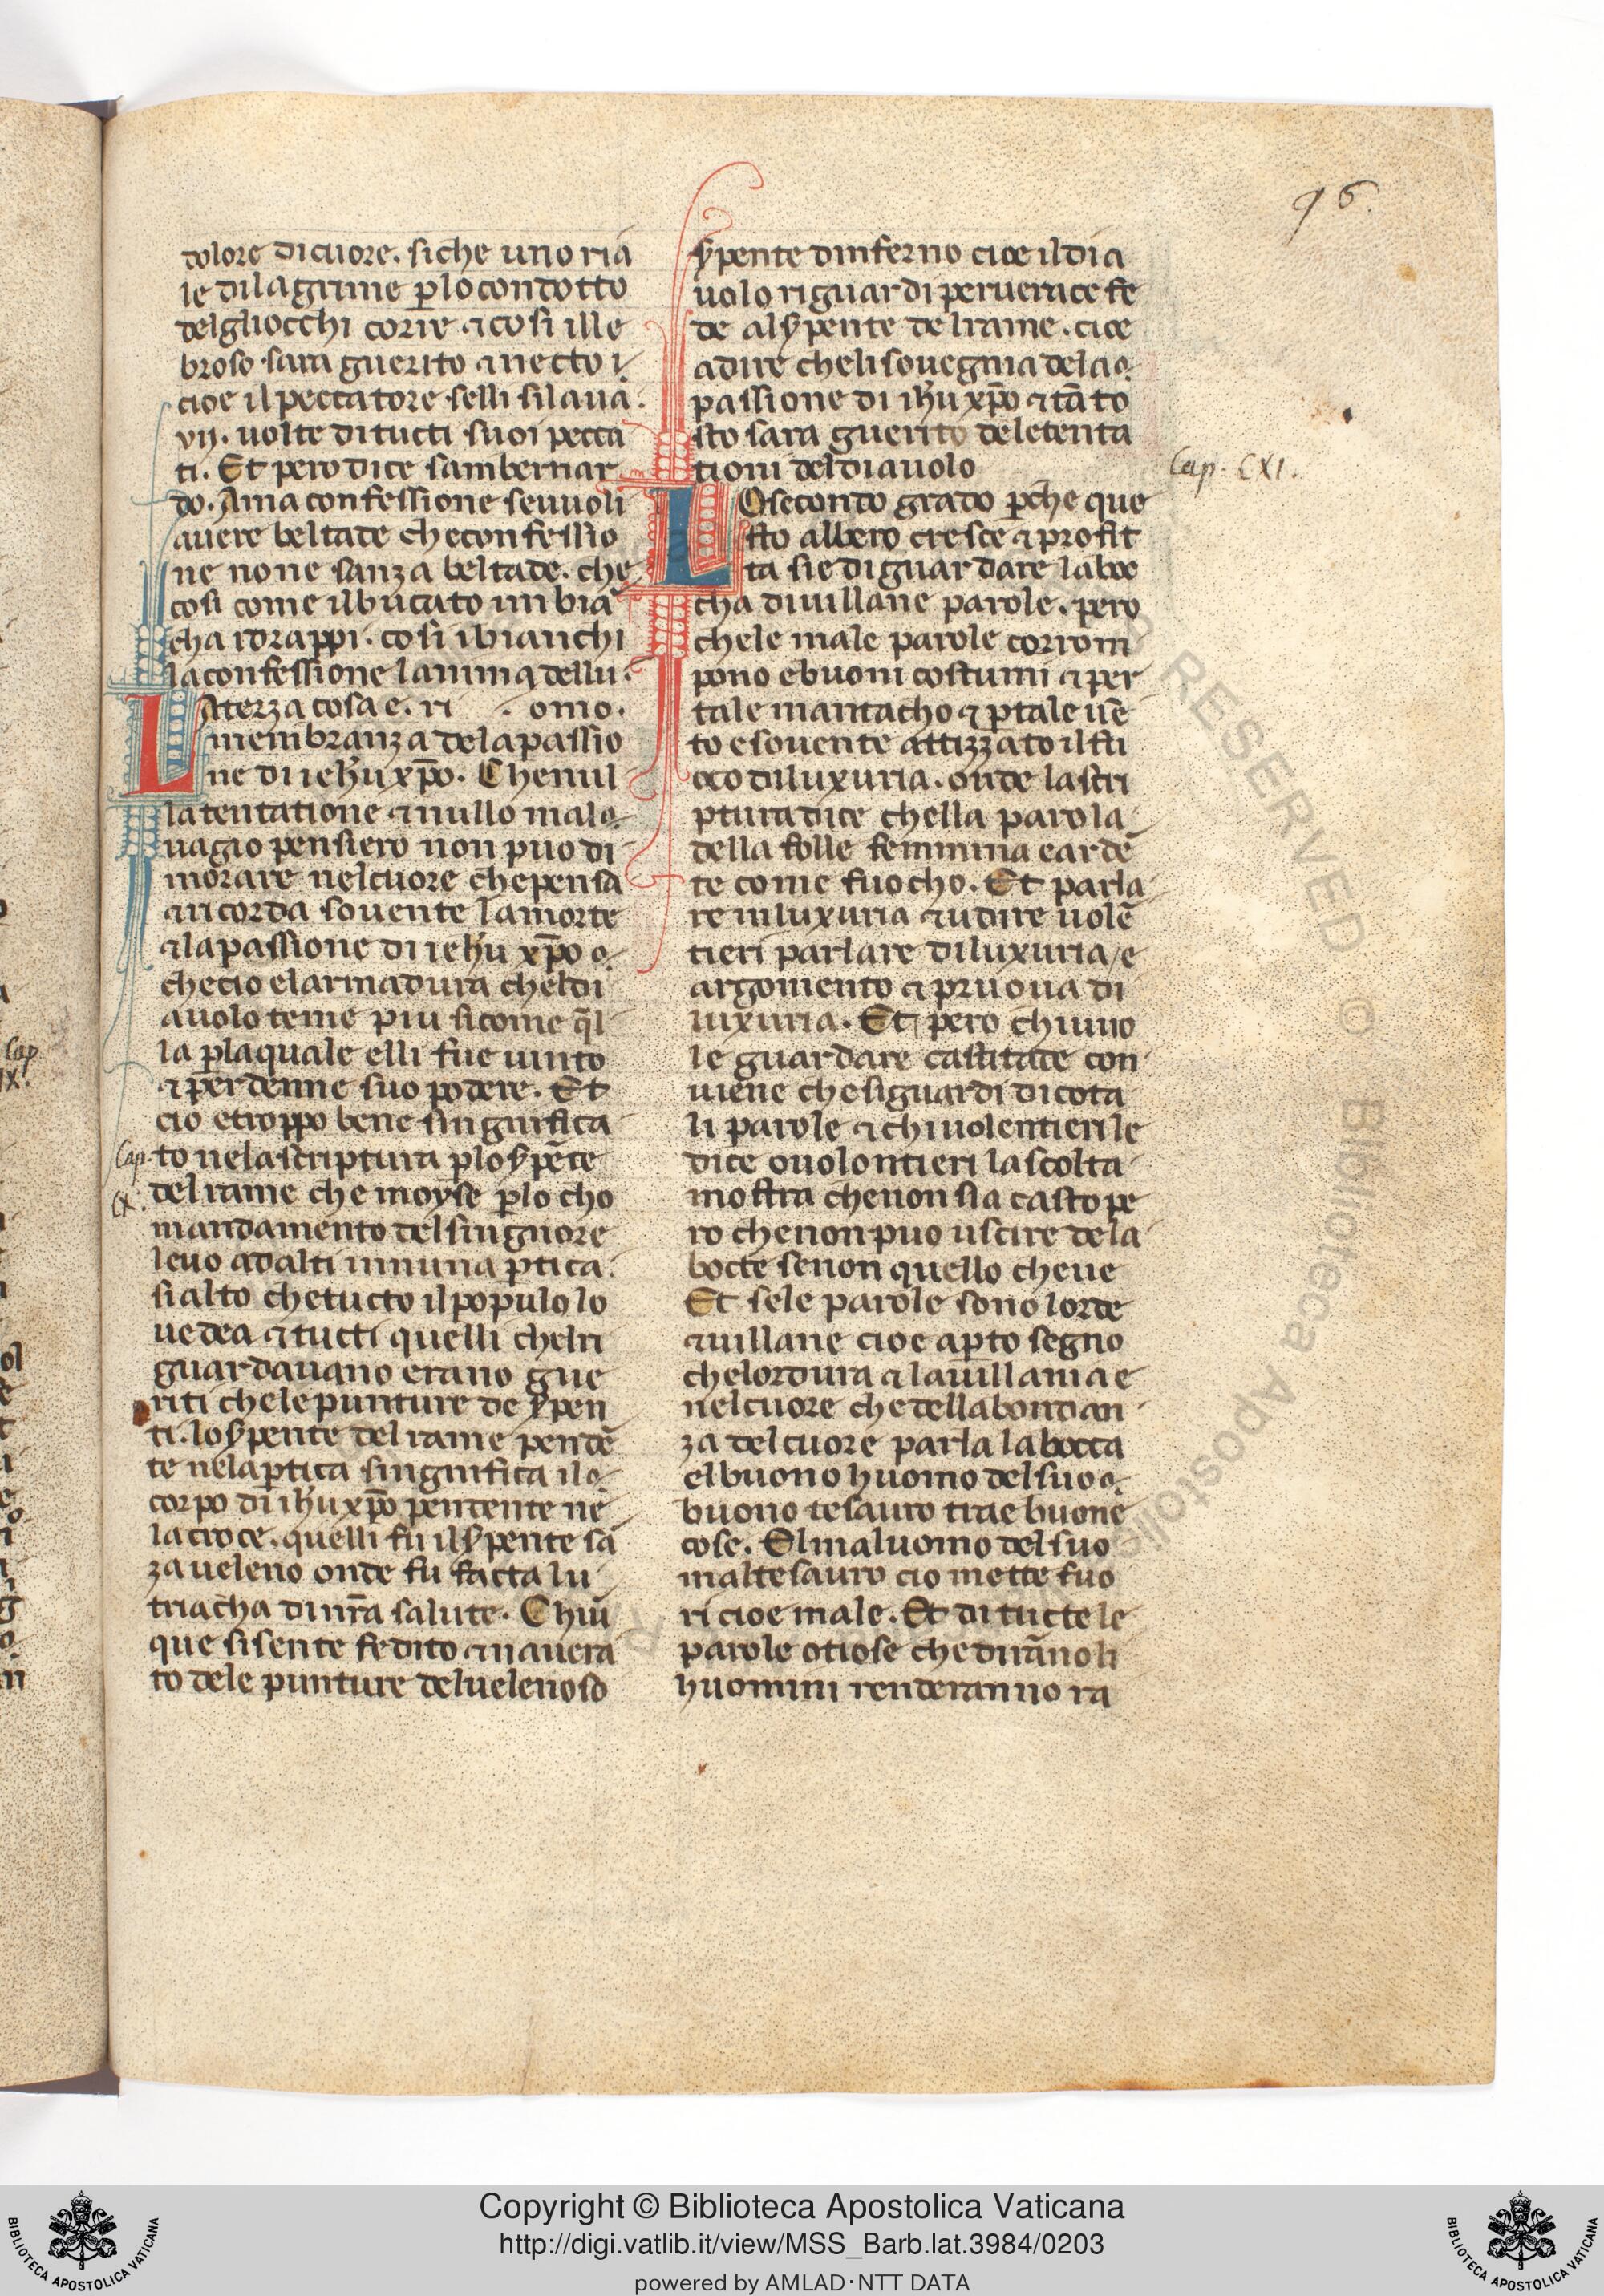 96.
dolore dicuore. siche uno ria
le dilagrime p̲lo condotto
delgliocchi corre ⁊ cosi ille
broso sara guerito ⁊ necto i.
cioe il peccatore selli silaua.
vij. uolte ditucti suoi pecca
ti. Et pero dice sambernar
do. Ama confessione seuuoli
auere beltade che confessio
ne none sanza beltade. che
cosi come ilbucato imbiā
cha idrappi. cosi ibianchi
la confessione lanima dellu.
LAterza cosa e. ri omo.
membranza delapassio
ne di iehū xp̄o. Che nul
la tentatione ⁊ nullo mal o.
uagio pensiero non puo di
morare nelcuore chepensa
ancorda souente lamorte
⁊ lapassione di iehū xp̄o o.
checio elarmadura cheldi
auolo teme piu sicome q̄l
la p̲laquale elli fue uinto
⁊ perdenne suo podere. Et
cio e troppo bene singnifica
Cap. CX.
to nelascriptura p̲lo sp̲ēte
del rame che moyse p̲lo cho
mandamento delsingnore
leuo adalti innuna p̲tica.
si alto chetucto il populo lo
uedea ⁊ tucti quelli chelri
guardauano erano gue
riti chelepunture de sp̲en
ti. lo sp̲ente del rame pendē
te nelap̲tica singnifica il o.
corpo di ihū xp̄o pendente ne
lacroce. quelli fu il sp̲ente sā
za ueleno onde fu facta lu
triacha di nr̄a salute. Chiū
que sisente fedito ⁊ nauera
to dele punture deluelenoso
sp̲ente dinferno cioe il dia
uolo riguardi peruerace fe
de al sp̲ente delrame. cioe
adire chelisouegnia dela o.
passione di ihū xp̄o ⁊ tāto
sto sara guerito deletenta
tioni deldiauolo
Cap. CXI.
LOsecondo grado p̲che que
sto albero cresce ⁊ profit
ta sie di guardare laboc
cha diuillane parole. pero
chele male parole corrom
pono ebuoni costumi ⁊ per
tale mantacho ⁊ p̲tale uē
to e souente attizzato il fu
oco diluxuria. onde lascri
ptura dice chella parola
della folle femmina e ardē
te come fuocho. Et parla
re inluxuria ⁊ udire uolē
tieri parlare diluxuria / e
argomento ⁊ pruoua di
luxuria. Et pero chiuuo
le guardare castitade con
uiene chesiguardi dicota
li parole ⁊ chi uolentieri le
dice ouolontieri lascolta
mostra chenon sia casto pe
ro chenon puo uscire dela
bocte senon quello cheue
Et sele parole sono lorde
⁊ uillane cioe ap̲to segno
chelordura ⁊ lauillania e
nelcuore chedellabondan
za delcuore parla labocca
elbuono huomo delsuo o.
buono tesauro trae buone
cose. Elmaluomo delsuo
maltesauro cio mette fuo
ri cioe male. Et ditucte le
parole otiose che dirāno li
huomini renderanno ra
Cap
IX.
Copyright © Biblioteca Apostolica Vaticana
http://digi.vatlib.it/view/MSS_Barb.lat.3984/0203
powered by AMLAD·NTT DATA
BIBLIOTECA APOSTOLICA VATICANA
BIBLIOTECA APOSTOLICA VATICANA